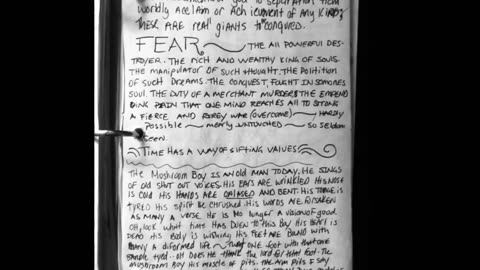 worldly Acclam or Achievement of Any Kind
these ARE real giants to conqured.
FEAR THE All POWERFUL DES-
TROYER. THE RICH AND WEATHY KING OF SOULS.
THE MANIPULATOR OF SUCH THOUGHT. THE POLITITION
OF SUCH DREAMS. THE CONQUEST, FOUGHT IN SOMEONES
SOUL. THE DUTY OF A MERCHANT MURDERS THE
PAIN THAT ONE MIND REACHES ALL TO STRONG
A FIERCE AND WAR (OVERCOME) HARDLY
Possible merly UNTOUCHED so seldom
Seen.
TIME HAS A WAY OF SIFTING VALUES
THE Mushroom Boy IS AN old MAN TODAY. HE SINGS
OF old SHUT OUT VOICES. HIS EARS ARE WRINKLED HIS NOSE
IS COLD HIS HANDS ARE AND BENT. HIS TABLE IS
TYRED HIS SPIRIT BE CHRUSHED. HIS WORDS ARE FORSAKEN
AS MANY A VERSE. HE IS NO longer A VISION OF good.
Oh, look what time HAS DUEN TO this Boy HIS heART IS
DEAD HIS Body IS HIS FEET ARE BAND WITH
A diformed life that ONE foot with that ONE
SANdle tyed. Oh DOES HE THANK the lord for that foot. The
Mushroom Boy HIS of pits. THE ARM pits I SAY